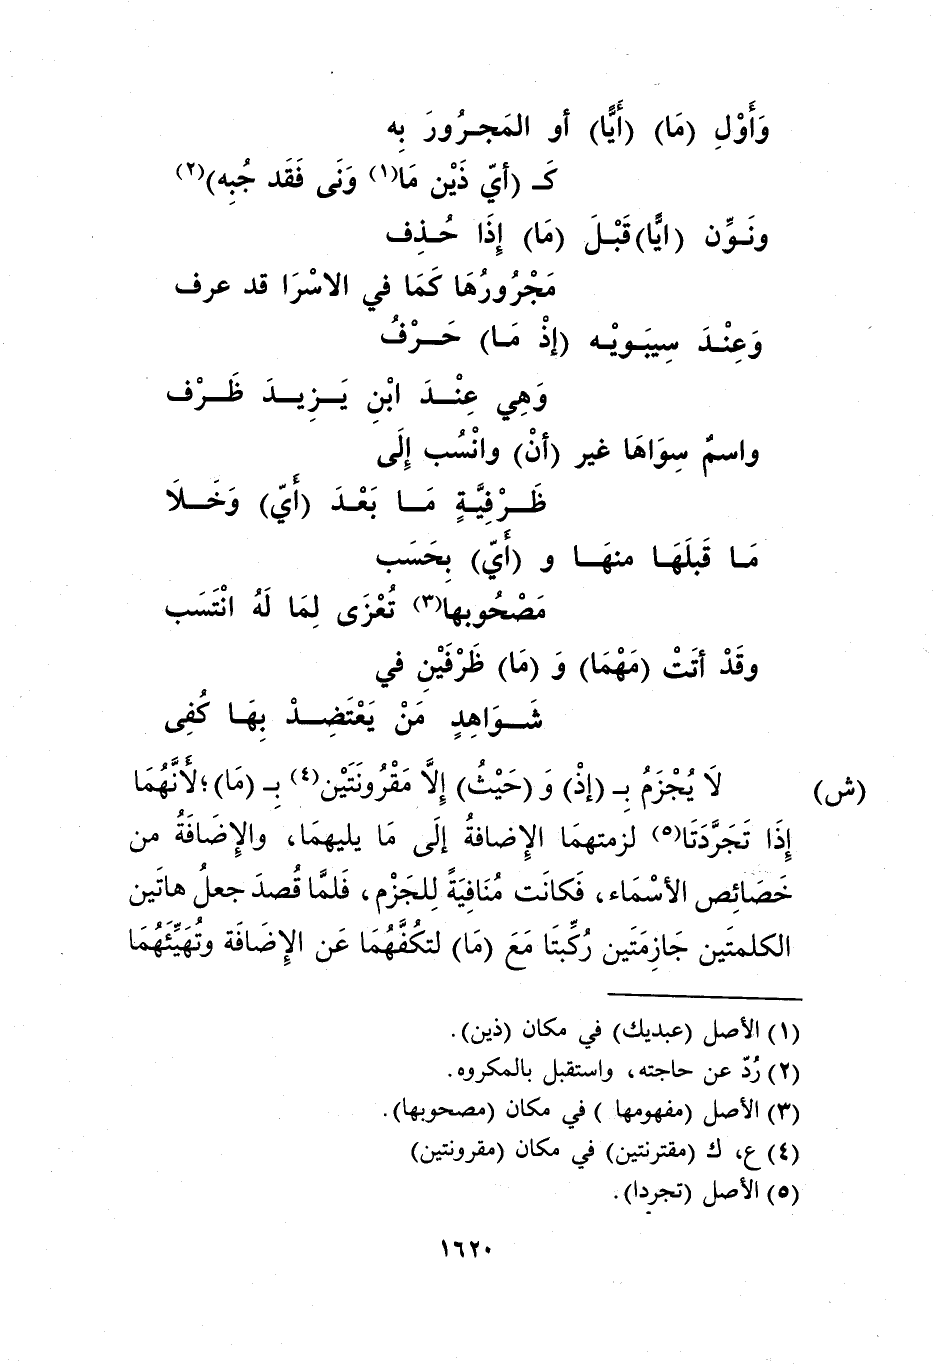 وَأَوْلِ (مَا) (أَيًّا) أو المَجـرُورَ بِه
كَـ (أيّ ذَيْن مَا(١) وَنَى فَقَد جُبِه)(٢)
ونَـوِّن (ايًّا)قَبْـلَ (مَا) إِذَا حُـذِف
مَجْرُورُهَا كَمَا في الاسْرَا قد عرف
وَعِنْـدَ سِيبَـويْـه (إذْ مَـا) حَـــرْفُ
وَهِي عِنْـــدَ ابْنِ يَــزِيــدَ ظَـــرْف
واسمٌ سِوَاهَا غير (أنْ) وانْسُب إلَى
ظَـــرْفِيَّةٍ مَــا بَعْـدَ (أَيّ) وَخَـــلَا
مَـا قَبلَهَـا منهَــا و (أَيّ) بِحَسَب
مَصْحُوبها(٣) تُعْزَى لِمَا لَهُ انْتَسَب
وقَدْ أتَتْ (مَهْمَا) وَ (مَا) ظَرْفَيْنِ في
شَــوَاهِدٍ مَنْ يَعْتَضِــدْ بِهَـا كُفِى
(ش) لَا يُجْزَمُ بِـ (إذْ) وَ (حَيْثُ) إلَّا مَقْرُونَتَيْن(٤) بِـ (مَا)؛لأَنَّهُمَا
إِذَا تَجَرَّدَتَا(٥) لزمتهمَا الإضافةُ إلَى مَا يليهمَا، والإِضَافَةُ من
خَصَائِص الأسْمَاء، فَكانَت مُنَافِيَةً لِلجَزْم، فَلمَّا قُصدَ جعلُ هاتَين
الكلمتَين جَازِمَتَين رُكِّبتَا مَعَ (مَا) لتكُفَّهُمَا عَن الإِضَافَة وتُهَيِّئَهُمَا
(١) الأصل (عبديك) في مكان (ذين).
(٢) رُدّ عن حاجته، واستقبل بالمكروه.
(٣) الأصل (مفهومها ) في مكان (مصحوبها).
(٤) ع، ك (مقترنتين) في مكان (مقرونتين)
(٥) الأصل (تجردا).
١٦٢٠